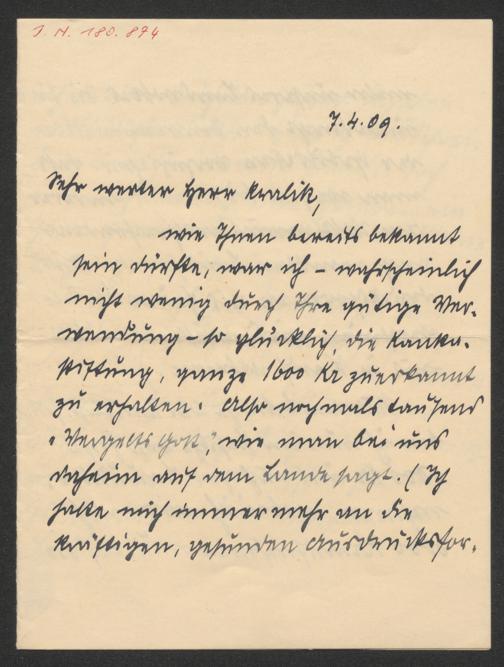 I. N. 180.894
7.4.09.
Sehr werter Herr Kralik,
wie Ihnen bereits bekannt
sein dürfte, war ich – wahrscheinlich
nicht wenig durch Ihre gütige Ver-
wendung – so glücklich, die Kanka-
stiftung, ganze 1600 Kr zuerkannt
zu erhalten. Also nochmals tausend
"Vergelts Gott", wie man bei uns
daheim auf dem Lande sagt. (Ich
halte mich immer mehr an die
kräftigen, gesunden Ausdrucksfor-